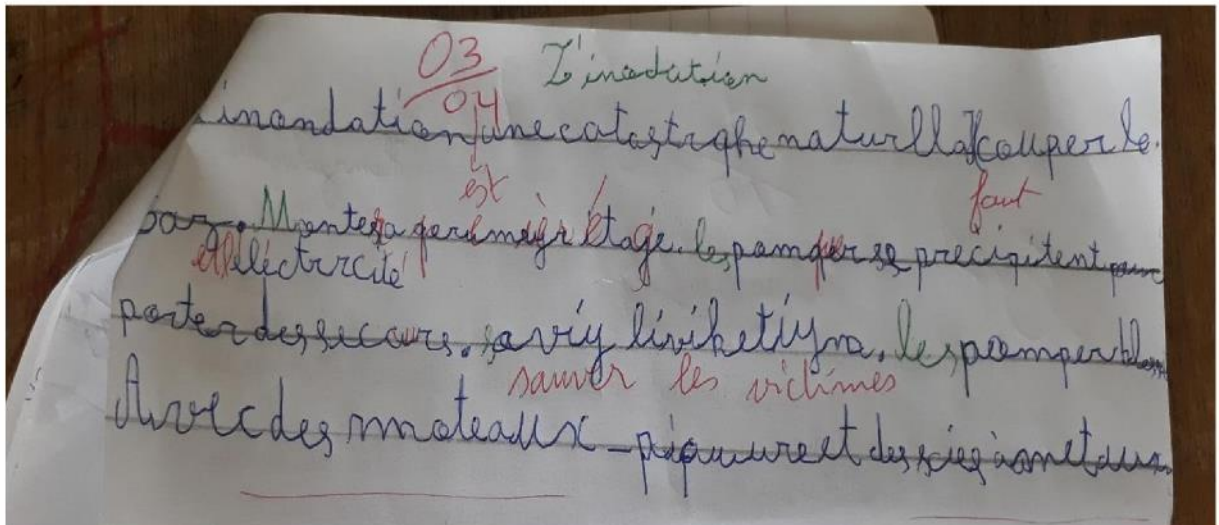 03/04 L'inodation
inondation une catastrghe naturlla couper le.
est faut
gaz. Montesa peremiģr étage. les pomper se precipitent pour
et l'éléctrcité
porter des secours. saviy liviketiyma. les pomper
sauver les victimes
Avec des mateaux - piqueure et des scies à metaux